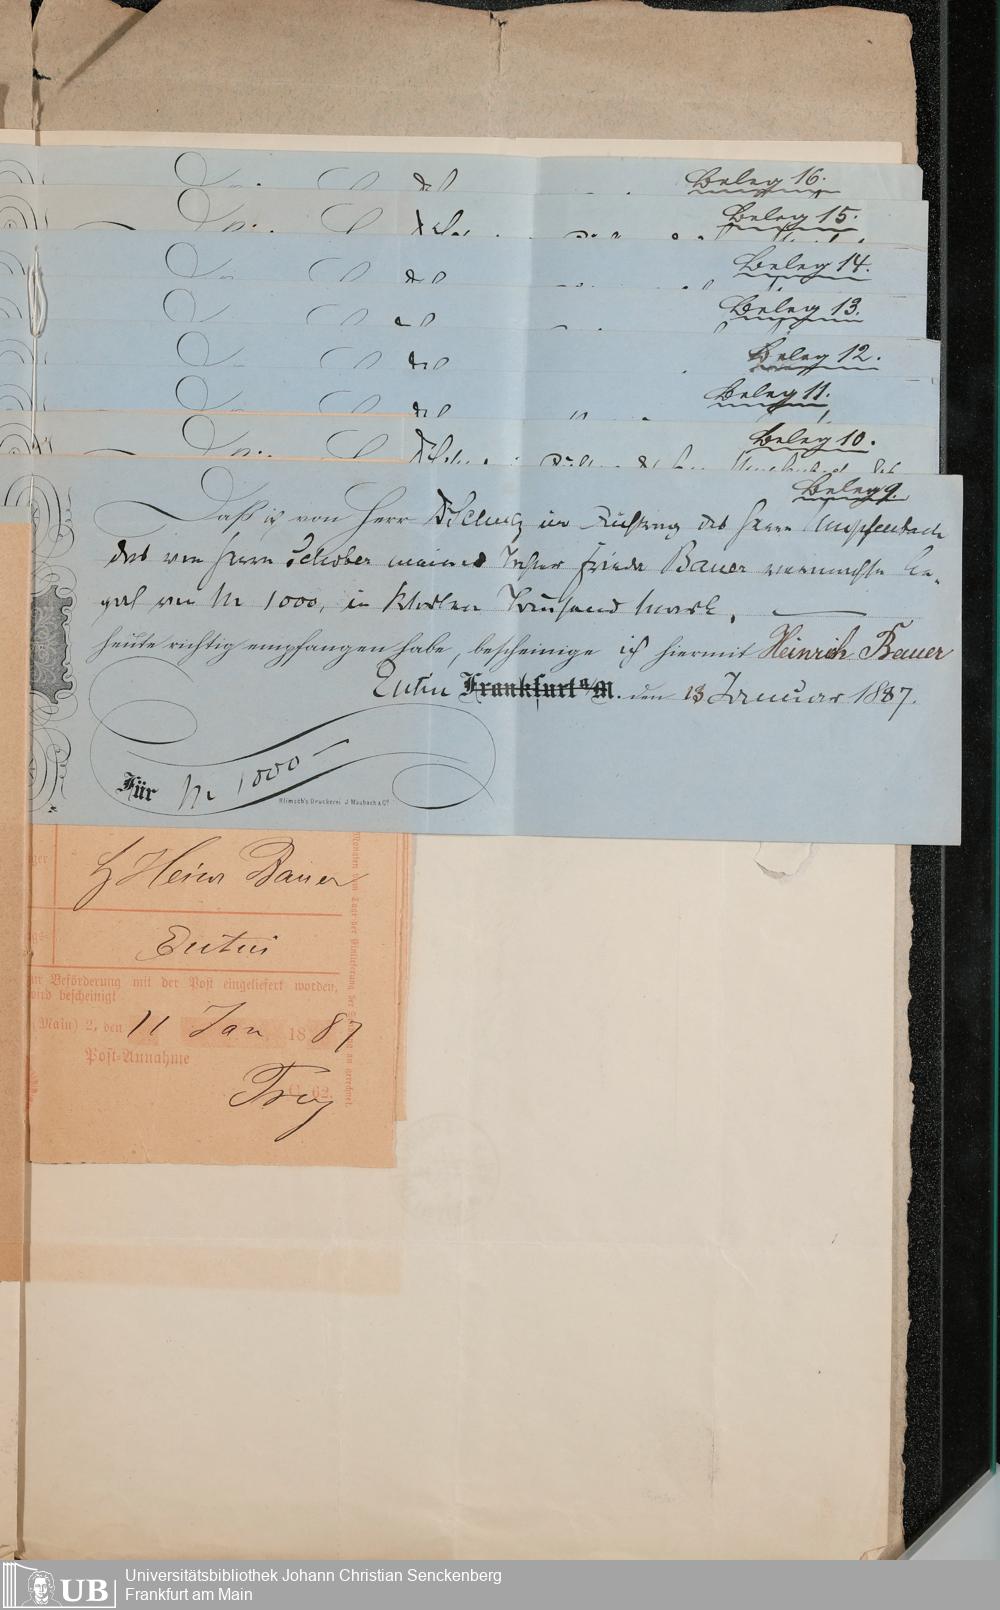 Beleg 16.
Beleg 15.
Beleg 14.
Beleg 13.
Beleg 12.
Beleg 11.
Beleg 10.
Beleg 9.
Daß ich von Herrn im Auftrag des Herrn
das von Herrn Schober meiner Tochter Frieda Bauer vermachte Le-
gat von M 1000, in Worten Tausend Mark,
heute richtig empfangen habe, bescheinige ich hiermit Heinrich Bauer
Eutin Frankfurt a/M. den 13 Januar 1887.
Für M 1000 —
Klimsch's Druckerei J. Maubach & Co
Heinr Bauer
Eutin
zur Beförderung mit der Post eingeliefert worden,
wird bescheinigt
(Main) 2, den 11 Jan 1887
Post-Annahme
C. 62.
UB
Universitätsbibliothek Johann Christian Senckenberg
Frankfurt am Main